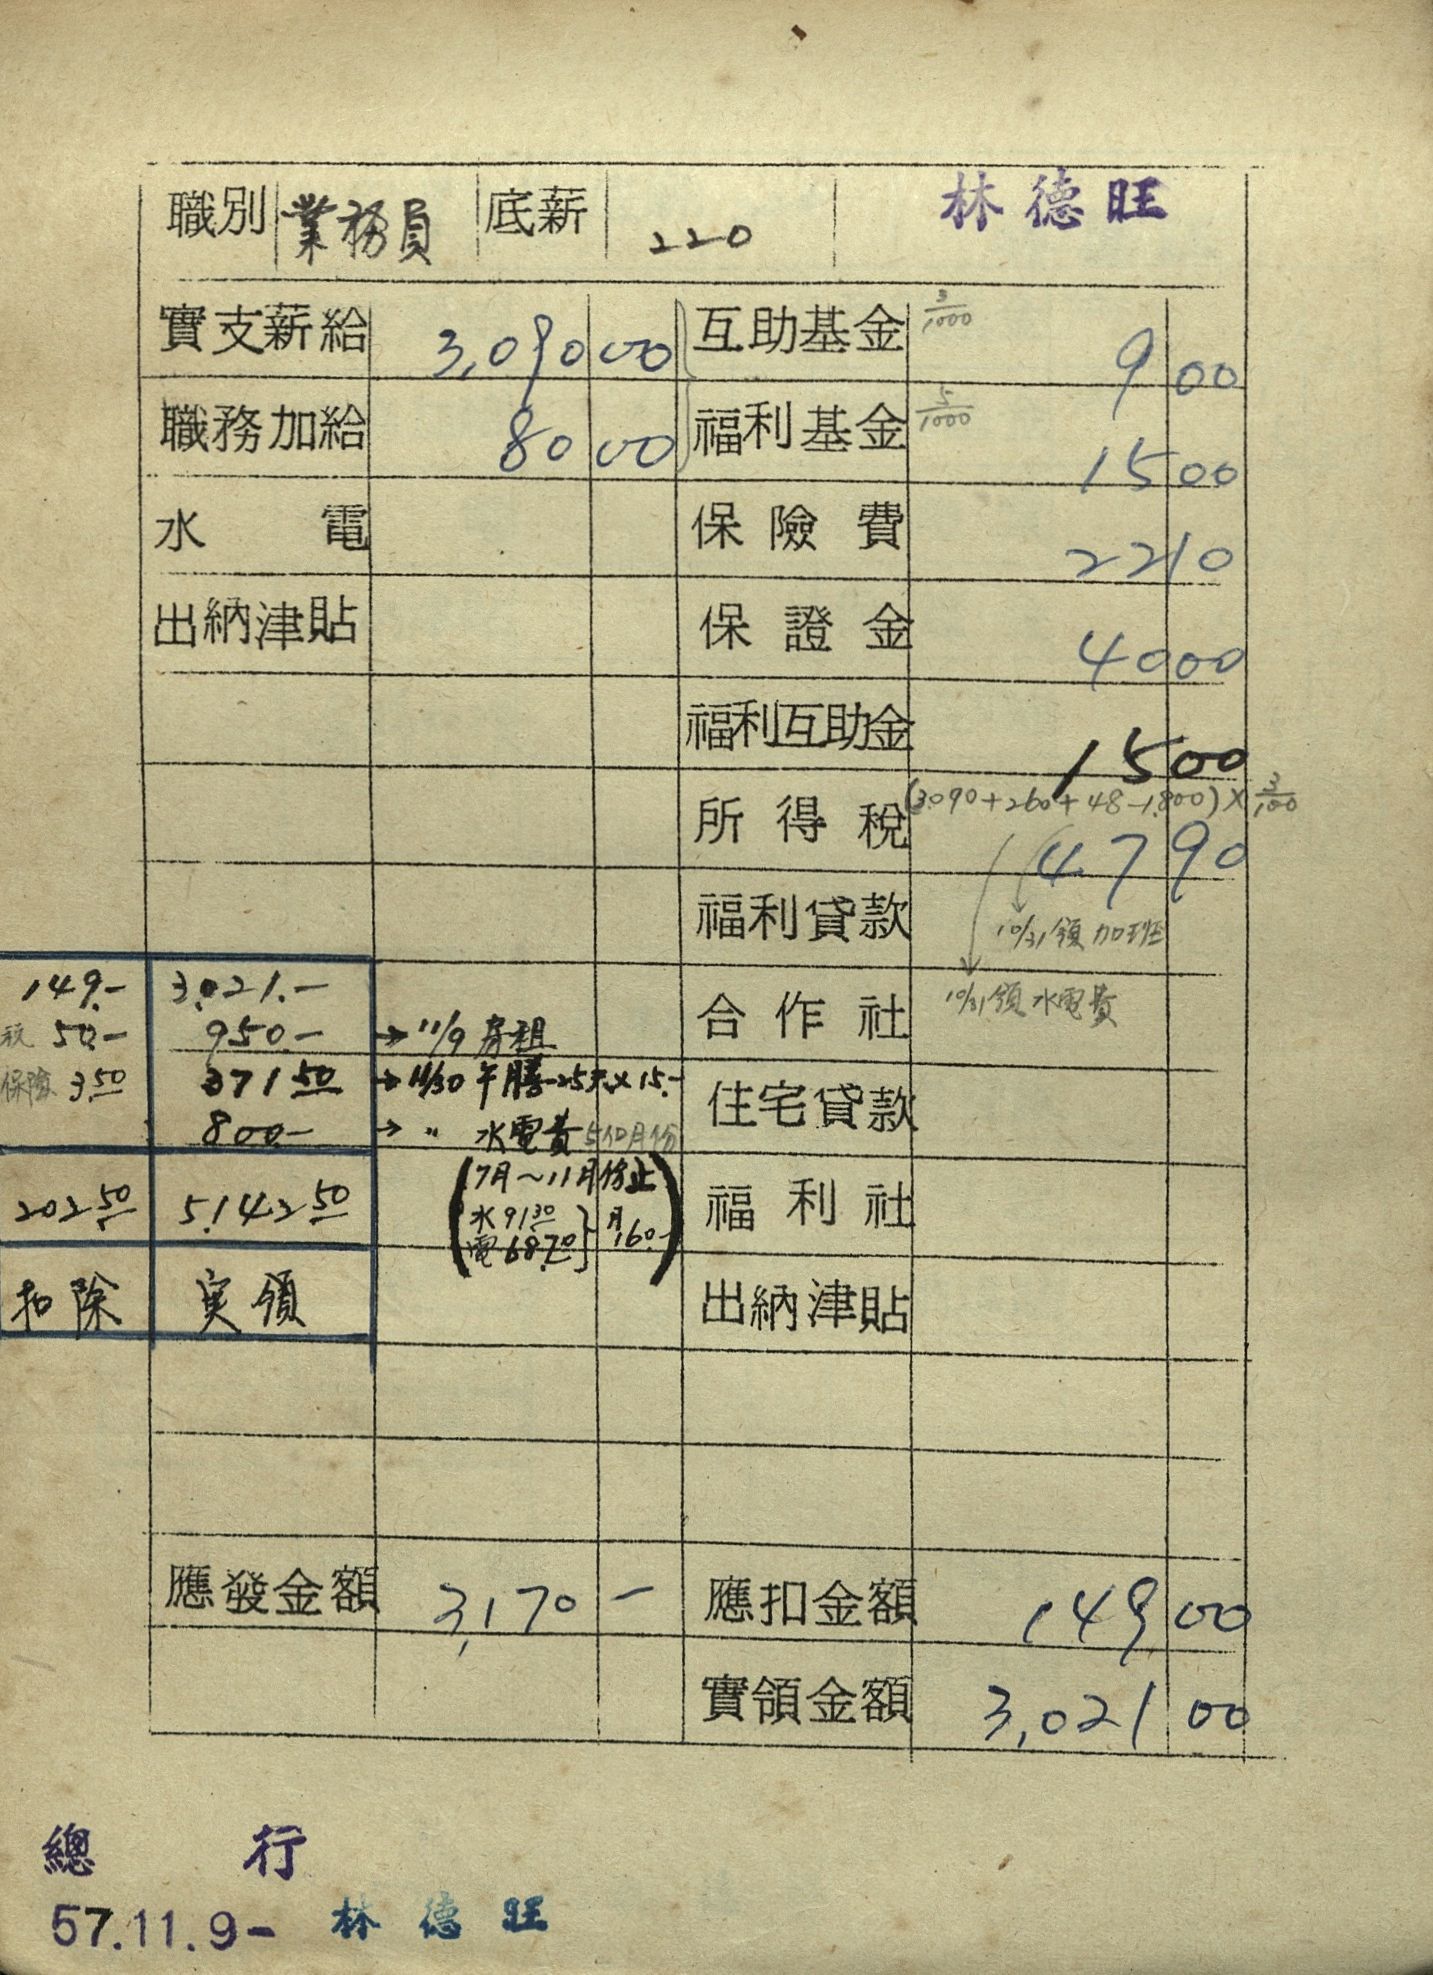 職別 業務員 底薪 220 林德旺
實支薪給 3,090 00 互助基金 3/1000 9 00
職務加給 80 00 福利基金 5/1000 15 00
水電 保險費 22 10
出納津貼 保證金 40 00
福利互助金 15 00
所得稅 (3.090+260+48-1.800)×3/100
47 90
福利貸款 10/31領加班
149.- 3.021.- 合作社 10/31領水電費
稅 50.- 950.- → 11/9 房租
保險 3 50 371 50 → 11/30 午膳-25天×15.- 住宅貸款
800.- → 〃 水電費 5個月份
(7月~11月份止
202 50 5.142 50 水 91 30 月160.- 福利社
電 68.70)
扣除 実領 出納津貼
應發金額 3,170 - 應扣金額 149 00
實領金額 3,021 00
總行
57.11.9- 林德旺